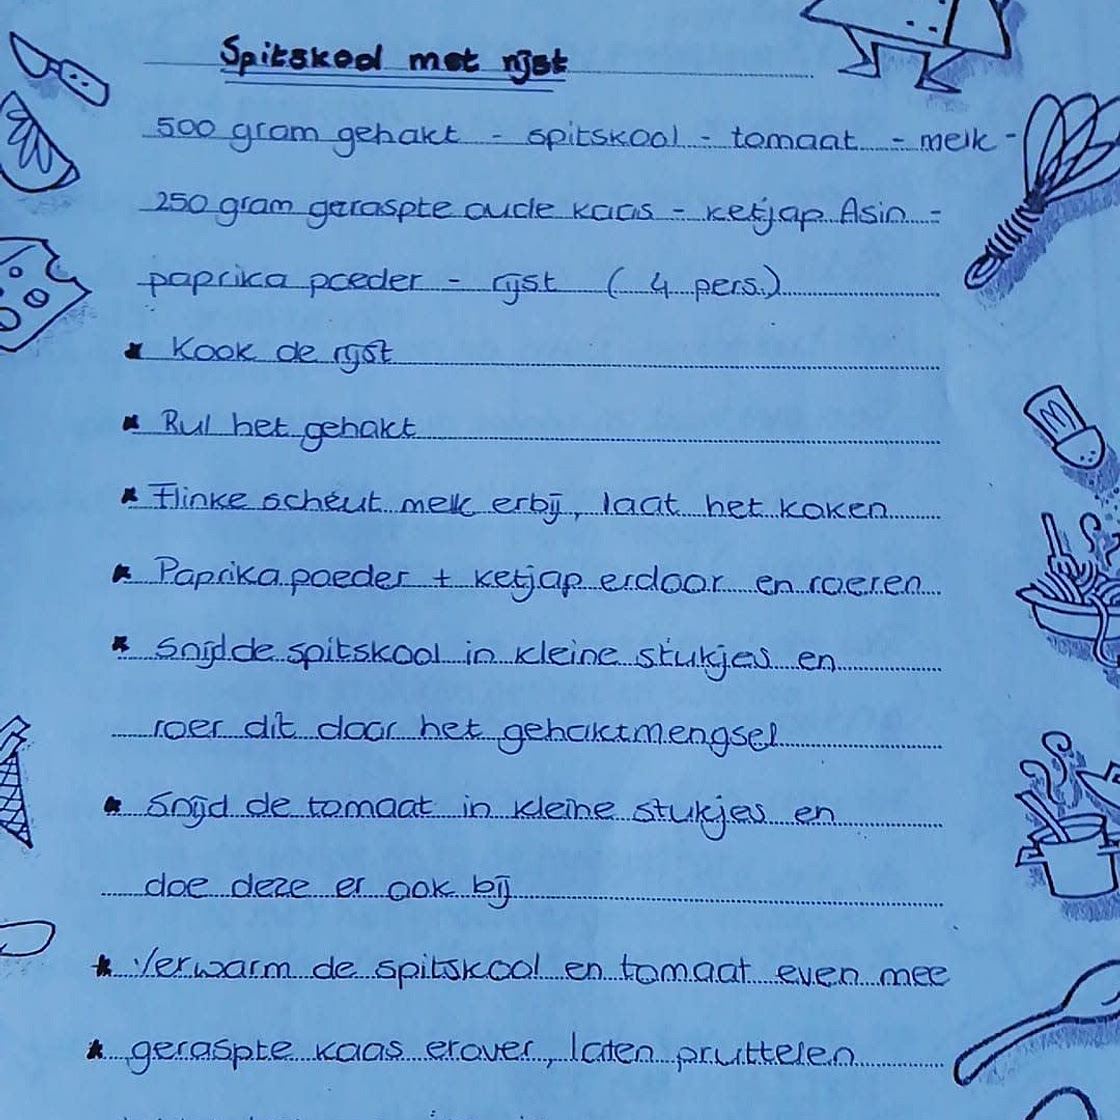 Spitskool met rijst
500 gram gehakt - spitskool - tomaat - melk -
250 gram geraspte oude kaas - ketjap Asin -
paprika poeder - rijst ( 4 pers.)
* Kook de rijst
* Rul het gehakt
* Flinke scheut melk erbij, laat het koken
* Paprika poeder + ketjap erdoor en roeren
* Snijd de spitskool in kleine stukjes en
roer dit door het gehaktmengsel
* Snijd de tomaat in kleine stukjes en
doe deze er ook bij
* Verwarm de spitskool en tomaat even mee
* geraspte kaas erover, laten pruttelen